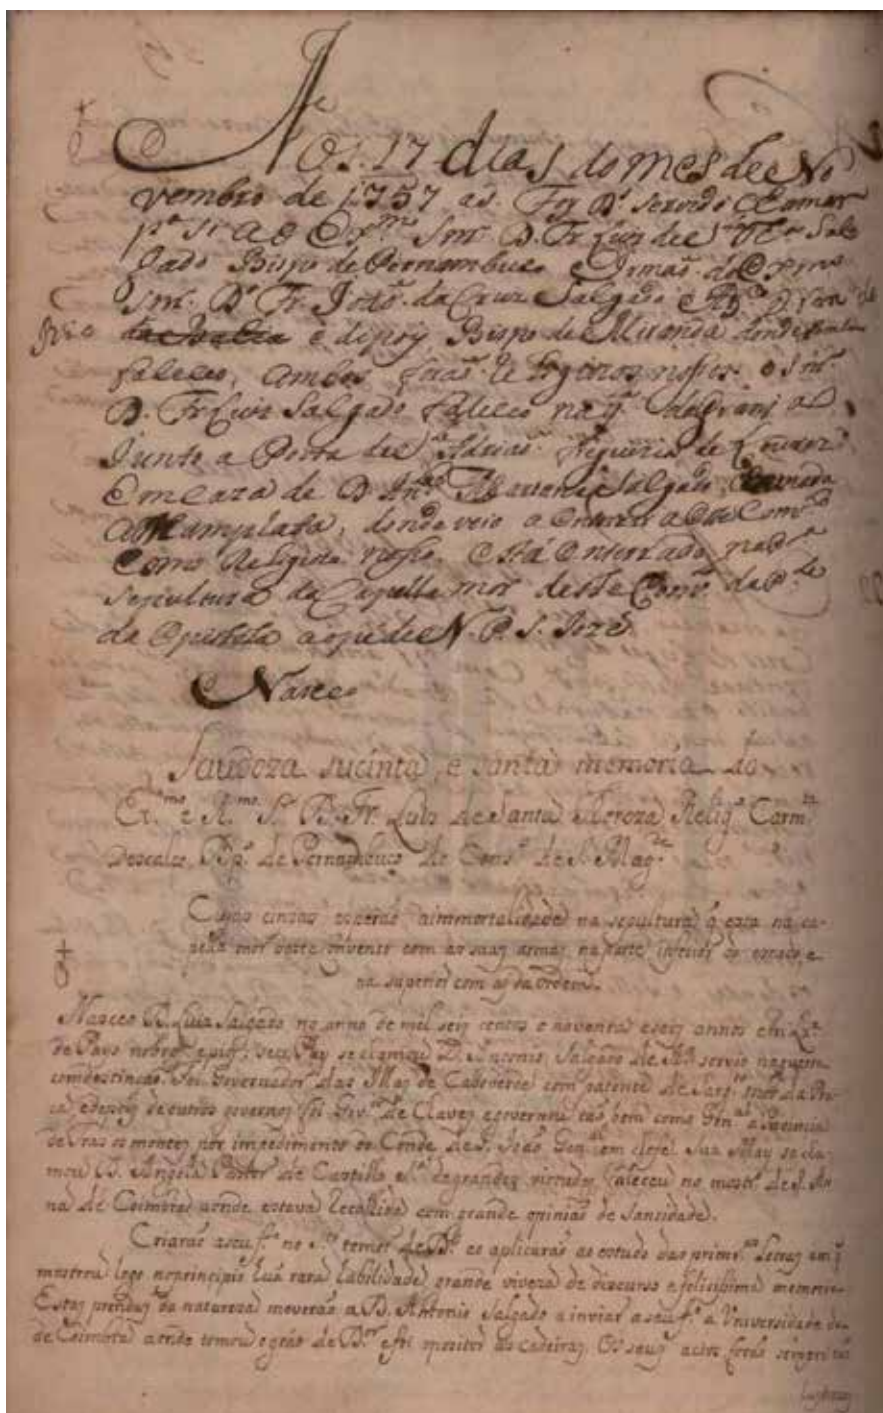 Aos 17 dias do mes de No
vembro de 1757 as Foy D.s servido Chamar
p.a si ao Ex.mo Snr. D. Fr. Luis de S.ta Thr.a Sal
gado Bispo de Pernambuco e Irmaõ do Ex.mo
Snr. D. Fr. Joaõ da Cruz Salgado e
e depoy Bispo de Miranda donde
faleceo, ambos foraõ Religiozos nossos. o Snr.
D. Fr. Luis Salgado faleceo na q.ta
Junto a Porta de Freguezia de
Em caza de D. Salgado, chamada
donde veio a enterrar a este Conv.to
Como Religiozo nosso. està enterrado na pr.a
sepultura da Capella mor deste Conv.to da p.te
da Epistola ao pè de N. P. S. Jozè
Nasceo
Saudoza sucinta, e santa memoria do
Ex.mo e R.mo S.r D. Fr. Luis de Santa Thereza Relig.o Carm.ta
Descalço, Bp.o de Pernambuco, do Cons.o de S. Mag.de
Cujas cinzas esperaõ a immortalidade na sepultura q̃ esta na ca-
pella mor deste convento com as suas armas na parte inferior do escudo, e
na superior com as da ordem.
Nasceo D. Luis Salgado no anno de mil seis centos e noventa e seis annos em Lx.a
de Pays nobres, e pios; seu Pay se chamou D. Antonio Salgado de servio na guerra
com destinçaõ. Foi Governador das Ilhas de Caboverde com patente de Sarg.to mor da Pra-
ça, e depois de outros governos foi Gov.or de Chaves e governou taõ bem como Gen.al a Provincia
de Tras os montes por impedimento do Conde de S. Joaõ Gen.al em chefe. Sua May se cha-
mou D. Angela Pastor de Castilho S.ra de grandes virtudes, faleceu no most.o de S. An
na de Coimbra aonde estava recolhida com grande opiniaõ de Santidade.
Criaraõ a seu f.o no S.to temor de D.s e o aplicaraõ ao estudo das primr.as Letras em q̃
mostrou logo no principio hũa rara habilidade, grande viveza de discurso e felicissima memoria.
Estas prendas da natureza moveraõ a D. Antonio Salgado a inviar a seu f.o a Universidade de
de Coimbra aonde tomou o grao de D.or e foi opozitor às cadeiras. Os seus actos foraõ sempre taõ